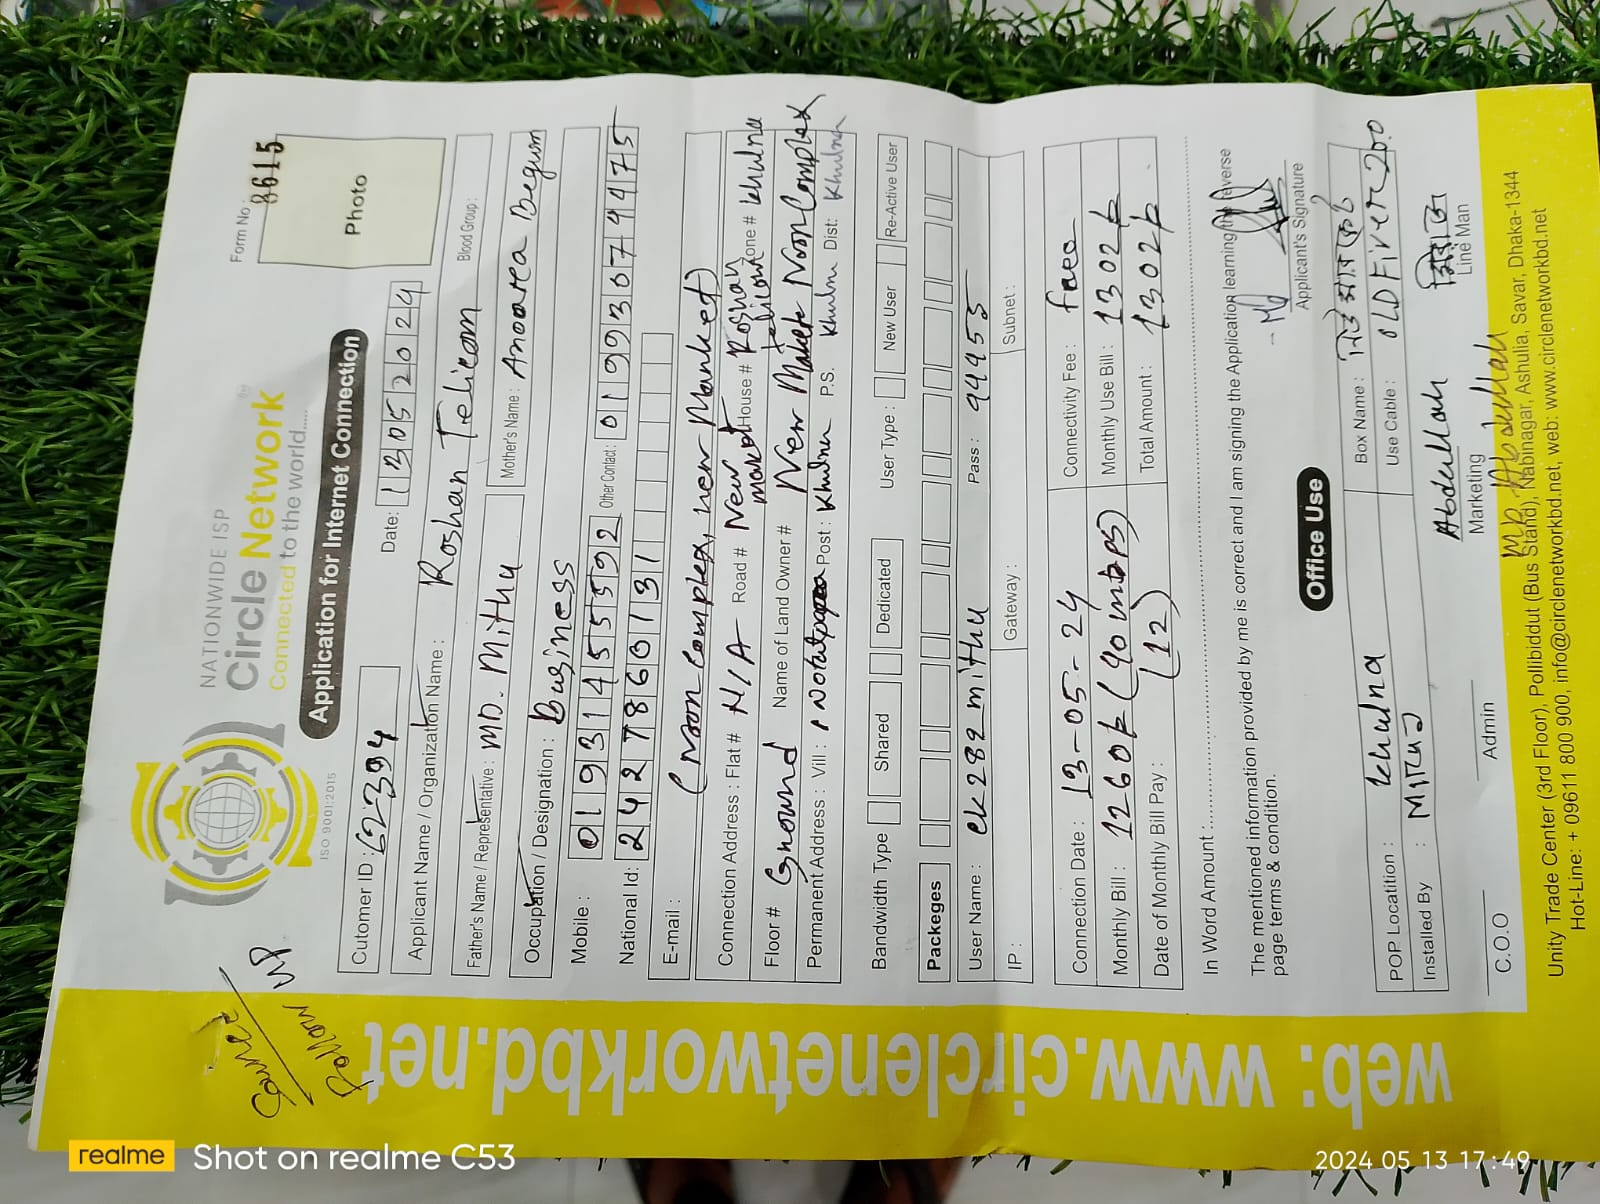 NATIONWIDE ISP
Circle Network
Connected to the world.....
ISO 9001:2015
Form No.
8615
Photo
Application for Internet Connection
Source
Follow UP
Cutomer ID : 62394
Date: 13052024
Applicant Name / Organization Name : Roshan Telicom
Father's Name / Representative : MD. Mithu
Mother's Name : Anooara Begum
Blood Group :
Occupation / Designation : Business
Mobile : 01931455592
Other Contact : 01993079475
National Id: 2427860131
E-mail :
(Noon Complex, new Market)
Connection Address : Flat # N/A Road # New Market House # Roshan Telicom Zone # Khulna
Floor # Ground Name of Land Owner # New Market Noon Complex
Permanent Address : Vill : Post : Khulna P.S. Khulna Dist: Khulna
Bandwidth Type Shared Dedicated User Type : New User Re-Active User
Packeges
User Name : ck282mithu Pass : 94455
IP : Gateway : Subnet :
Connection Date : 13-05-24 Connectivity Fee : free
Monthly Bill : 1260/= (40 mbps) Monthly Use Bill : 1302/=
Date of Monthly Bill Pay : (12) Total Amount : 1302/=
In Word Amount :
The mentioned information provided by me is correct and I am signing the Application learning the reverse
page terms & condition.
Applicant's Signature
Office Use
POP Locatition : khulna Box Name :
Installed By : Miraj Use Cable : OLD Fiver 200
Abdullah
C.O.O Admin Marketing Line Man
MD Abdullah
Unity Trade Center (3rd Floor), Pollibiddut (Bus Stand), Nabinagar, Ashulia, Savar, Dhaka-1344
Hot-Line: + 09611 800 900, info@circlenetworkbd.net, web: www.circlenetworkbd.net
web: www.circlenetworkbd.net
realme Shot on realme C53
2024 05 13 17:49